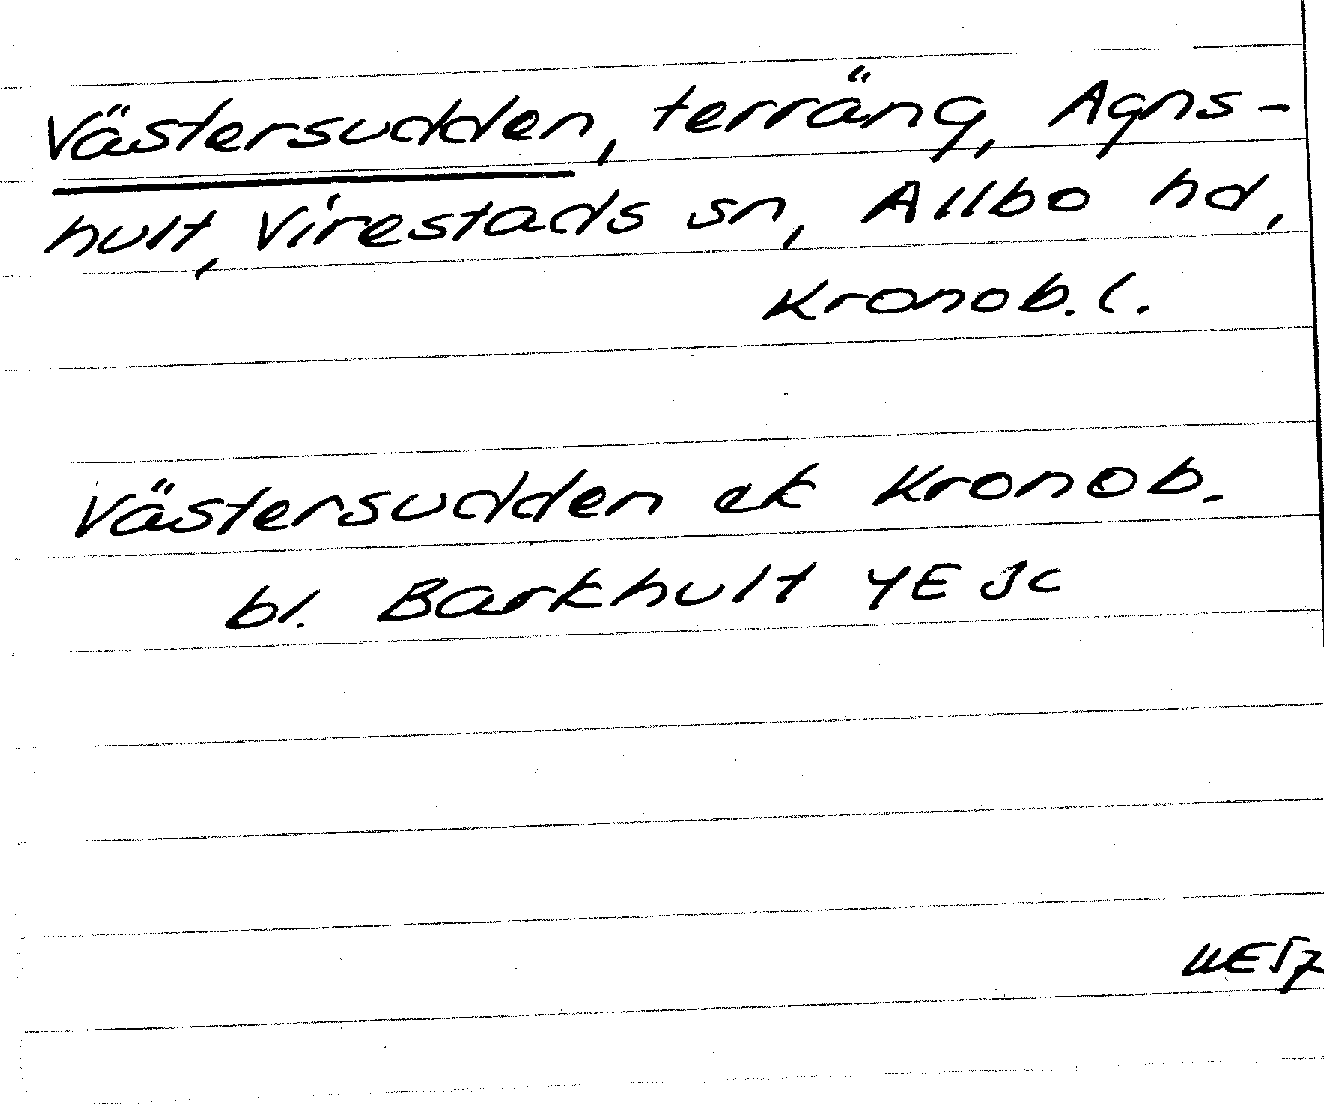 Västersudden, terräng, Agns-
hult, Virestads sn, Allbo hd,
Kronob. l.
Västersudden ek Kronob.
bl. Barkhult 4E 3c